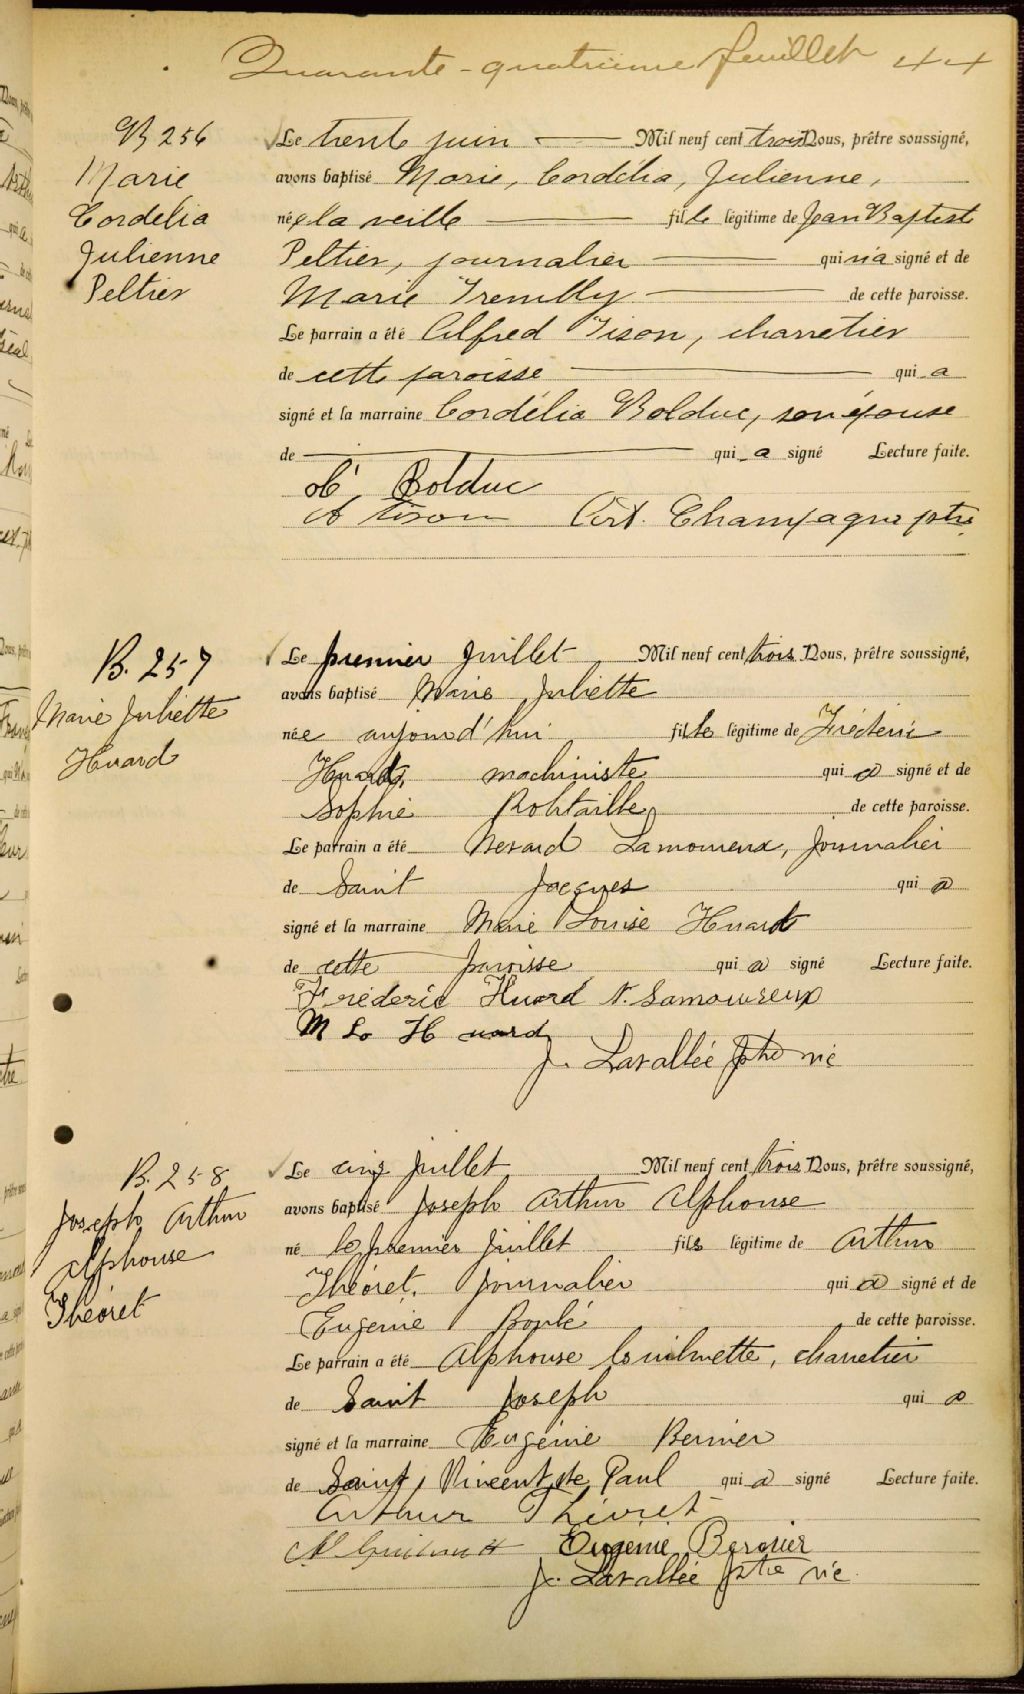 Quarante-quatrième feuillet 44
B 256
Marie
Cordélia
Julienne
Peltier
Le trente juin Mil neuf cent trois Nous, prêtre soussigné,
avons baptisé Marie, Cordélia, Julienne,
née la veille fille légitime de Jean Baptiste
Peltier, journalier qui n'a signé et de
Marie Tremblay de cette paroisse.
Le parrain a été Alfred Tison, charretier
de cette paroisse qui a
signé et la marraine Cordélia Bolduc, son épouse
de qui a signé Lecture faite.
Bolduc
A Tison Art. Champagne ptre
B. 257
Marie Juliette
Huard
Le premier juillet Mil neuf cent trois Nous, prêtre soussigné,
avons baptisé Marie Juliette
née aujourd'hui fille légitime de Fréderic
Huard, machiniste qui a signé et de
Sophie Robtaille de cette paroisse.
Le parrain a été Lamoureux, journalier
de Saint Jacques qui a
signé et la marraine Marie Louise Huard
de cette paroisse qui a signé Lecture faite.
Fréderic Huard N. Lamoureux
M Ls Huard
J. Lavallée ptre vic
B. 258
Joseph Arthur
Alphonse
Théoret
Le cinq juillet Mil neuf cent trois Nous, prêtre soussigné,
avons baptisé Joseph Arthur Alphonse
né le premier juillet fils légitime de Arthur
Théoret, journalier qui a signé et de
Eugenie Boulé de cette paroisse.
Le parrain a été Alphonse Guilmette, charretier
de Saint Joseph qui a
signé et la marraine Eugénie Bernier
de Saint Vincent de Paul qui a signé Lecture faite.
Arthur Théoret
Eugénie Bernier
J. Lavallée ptre vic.